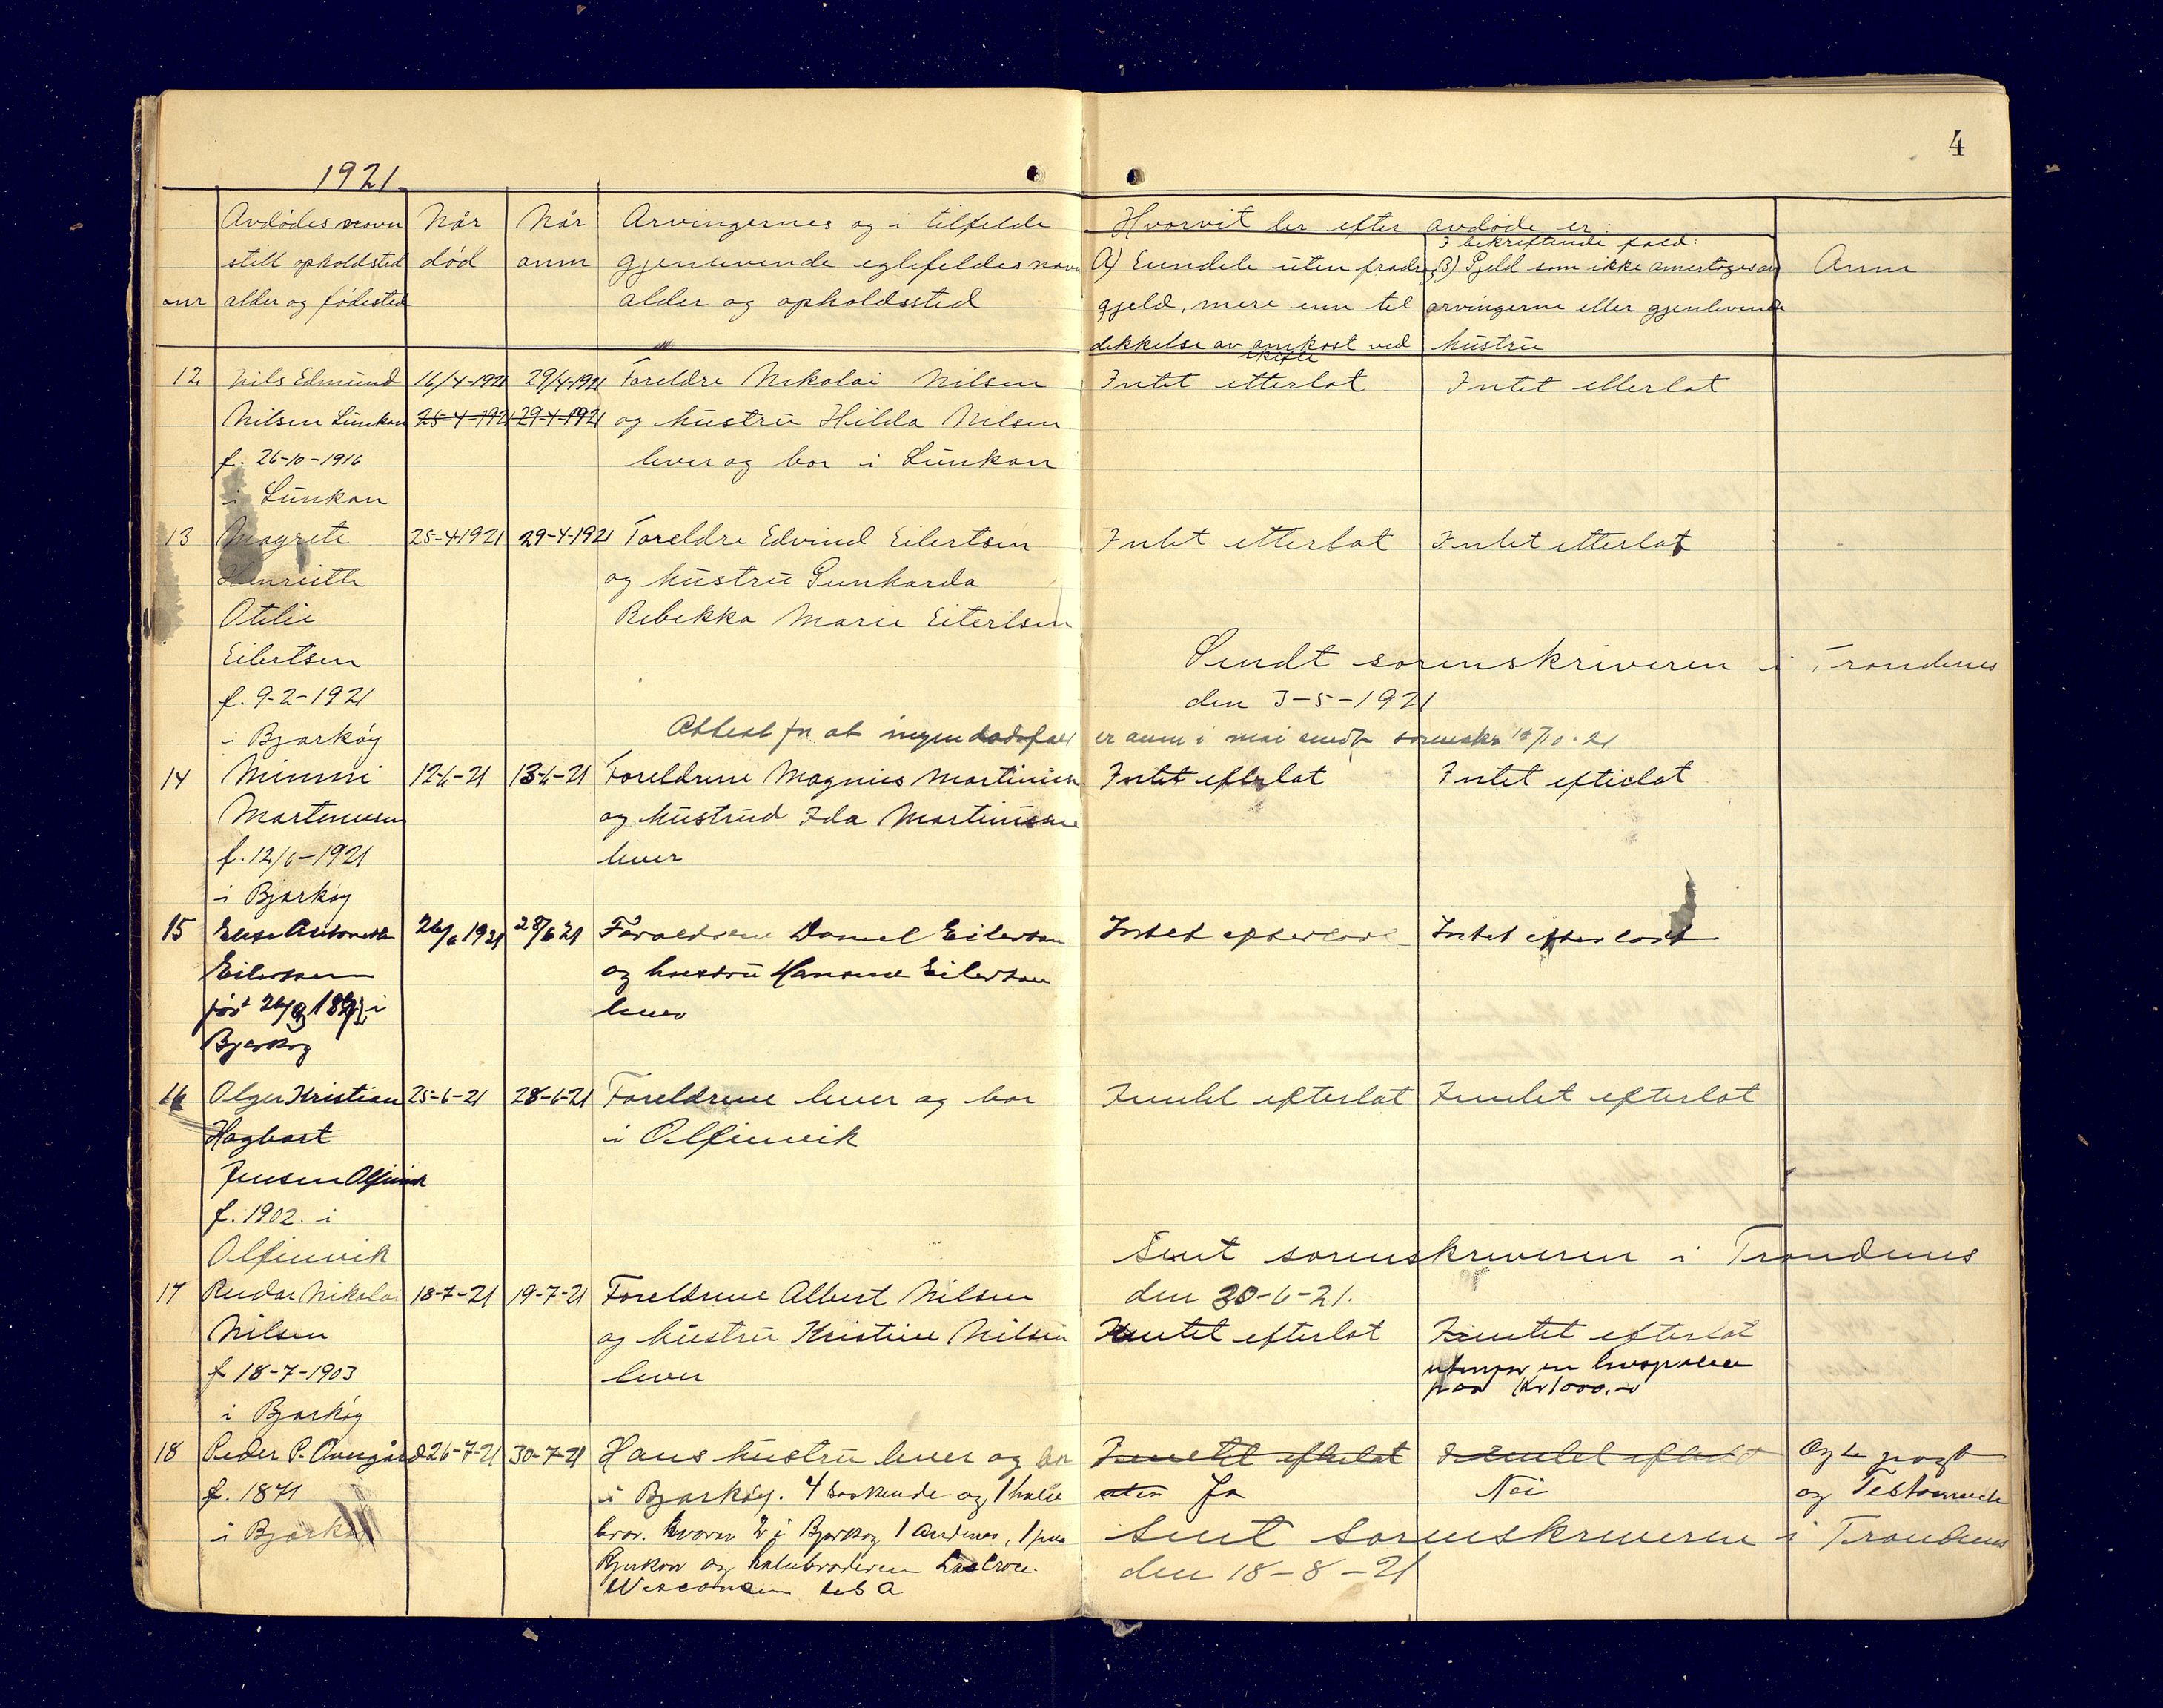 4
1921
Avdødes navn
still opholdsted
alder og fødested
Når
død
Når
anm
Arvingernes og i tilfelde
gjenlevende
alder og opholdssted
Hvorvit der efter avdøde er:
A) Eiendele uten fradrag
gjeld, mere enn til
dekkelse av omkost ved
skifte
I bekreftende fald:
B) Gjeld som ikke
arvingerne eller gjenlevende
hustru
Anm
12
Nils Edmund
Nilsen Lunkan
f. 26-10-1916
i Lunkan
16/4-1921
25-4-1921
29/4-1921
29-4-1921
Foreldre Nikolai Nilsen
og hustru Hilda Nilsen
lever og bor i Lunkan
Intet etterlot
Intet etterlot
13
Magrete
Henriette
Otelie
Eilertsen
f. 9-2-1921
i Bjarkøy
25-4-1921
29-4-1921
Foreldre Edvind Eilertsen
og hustru Gunharda
Rebekka Marie Eilertsen
Intet etterlot
Intet etterlot
Sendt sorenskriveren i Trondenes
den 3-5-1921
Attest for at ingen dødsfall er anm i mai sendt sorenskr
14
Mimmi
Martinusen
f. 12/6-1921
i Bjarkøy
12-6-21
13-6-21
Foreldrene Magnus Martinusen
og hustrud Ida Martinusen
lever
Intet efterlot
Intet efterlot
15
Eilertsen
Bjarkøy
26/6 1921
28/6 21
Foreldrene Daniel Eilertsen
og hustru Hansine Eilertsen
lever
Intet efterlot
Intet efterlot
16
Olger Kristian
Hagbart
Jensen Altjenvik
f. 1902. i
25-6-21
28-6-21
Foreldrene lever og bor
i
Inntet efterlot
Inntet efterlot
Sent sorenskriveren i Trondenes
den 30-6-21.
17
Reidar Nikolai
Nilsen
f 18-7-1903
i Bjarkøy
18-7-21
19-7-21
Foreldrene Albert Nilsen
og hustru Kristine Nilsen
lever
Inntet efterlot
Inntet efterlot
paa Kr 1000.-
18
Peder P. Overgård
f. 1871
i Bjarkøy
26-7-21
30-7-21
Hans hustru lever og bor
i Bjarkøy. 4 søskende og 1 halv
bror. hvorav 2 i Bjarkøy 1 Andenes, 1 paa
og halvbroderen La Crosse
Wisconsin
Inntet efterlot
Ja
Inntet efterlot
Nei
og Testamente
Sent sorenskriveren i Trondenes
den 18-8-21